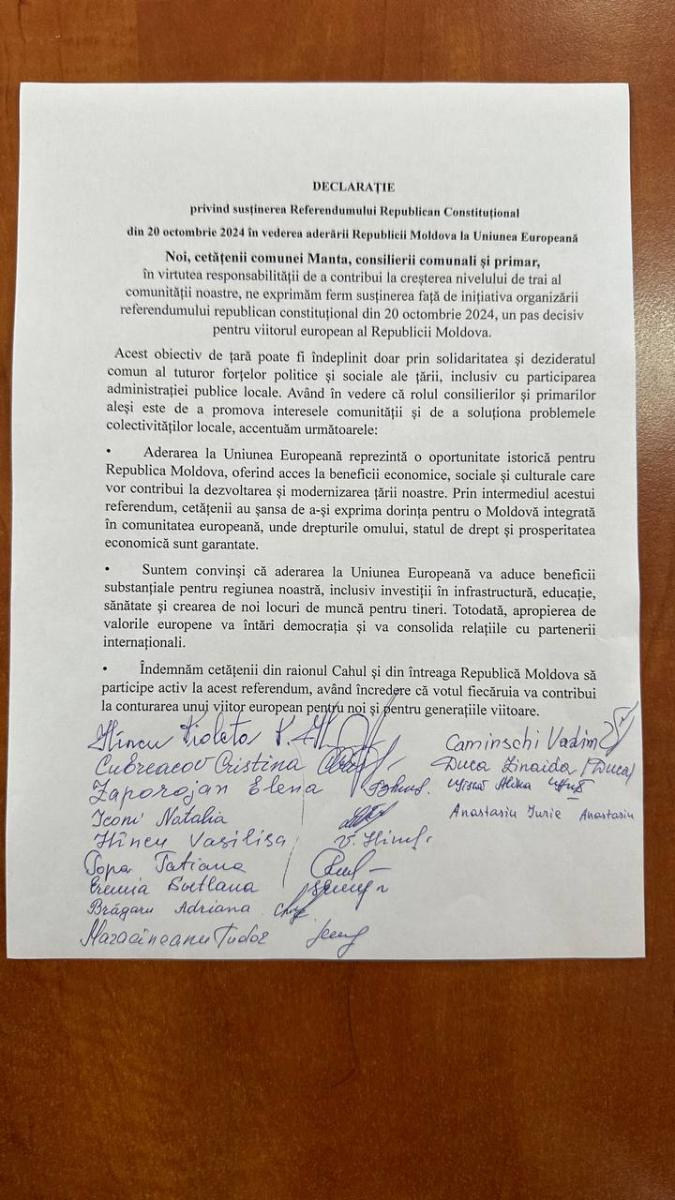 DECLARAȚIE
privind susținerea Referendumului Republican Constituțional
din 20 octombrie 2024 în vederea aderării Republicii Moldova la Uniunea Europeană
Noi, cetățenii comunei Manta, consilierii comunali și primar,
în virtutea responsabilității de a contribui la creșterea nivelului de trai al
comunității noastre, ne exprimăm ferm susținerea față de inițiativa organizării
referendumului republican constituțional din 20 octombrie 2024, un pas decisiv
pentru viitorul european al Republicii Moldova.
Acest obiectiv de țară poate fi îndeplinit doar prin solidaritatea și dezideratul
comun al tuturor forțelor politice și sociale ale țării, inclusiv cu participarea
administrației publice locale. Având în vedere că rolul consilierilor și primarilor
aleși este de a promova interesele comunității și de a soluționa problemele
colectivităților locale, accentuăm următoarele:
• Aderarea la Uniunea Europeană reprezintă o oportunitate istorică pentru
Republica Moldova, oferind acces la beneficii economice, sociale și culturale care
vor contribui la dezvoltarea și modernizarea țării noastre. Prin intermediul acestui
referendum, cetățenii au șansa de a-și exprima dorința pentru o Moldovă integrată
în comunitatea europeană, unde drepturile omului, statul de drept și prosperitatea
economică sunt garantate.
• Suntem convinși că aderarea la Uniunea Europeană va aduce beneficii
substanțiale pentru regiunea noastră, inclusiv investiții în infrastructură, educație,
sănătate și crearea de noi locuri de muncă pentru tineri. Totodată, apropierea de
valorile europene va întări democrația și va consolida relațiile cu partenerii
internaționali.
• Îndemnăm cetățenii din raionul Cahul și din întreaga Republică Moldova să
participe activ la acest referendum, având încredere că votul fiecăruia va contribui
la conturarea unui viitor european pentru noi și pentru generațiile viitoare.
Hîncu Violeta
Cubreacov Cristina
Zaporojan Elena
Iconi Natalia
Hîncu Vasilisa V. Hîncu
Popa Tatiana
Eremia Svetlana
Brăgaru Adriana
Maracineanu Tudor
Caminschi Vadim
Duca Zinaida (Duca)
Alina
Anastasiu Iurie Anastasiu